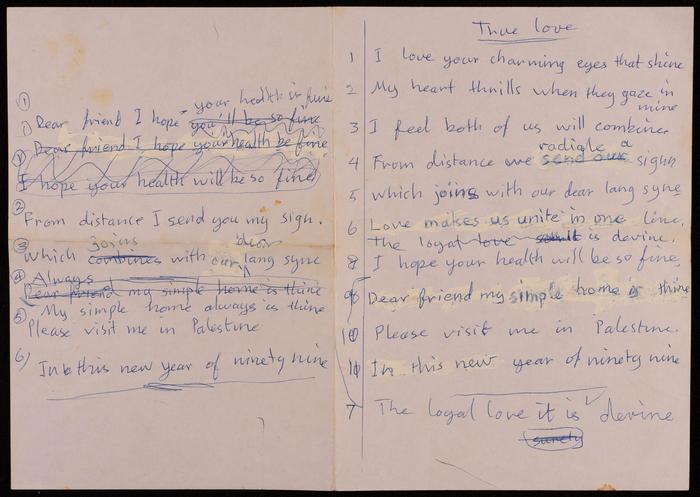 ① your health is fine
1) Dear friend I hope you'll be so fine
① Dear friend I hope your health be fine
I hope your health will be so fine
② From distance I send you my sign.
joins dear
③ Which combines with our lang syne
④ Always
Dear friend my simple home is thine
⑤ My simple home always is thine
Please visit me in Palestine
6) In this new year of ninety nine
True love
1 I love your charming eyes that shine
2 My heart thrills when they gaze in
mine
3 I feel both of us will combine
radiate a
4 From distance we send our sign
5 which joins with our dear lang syne
6 Love makes us unite in one line.
The loyal love is devine.
8 I hope your health will be so fine
9 Dear friend my simple home is thine
10 Please visit me in Palestine.
11 In this new year of ninety nine
7 The loyal love it is devine
surely